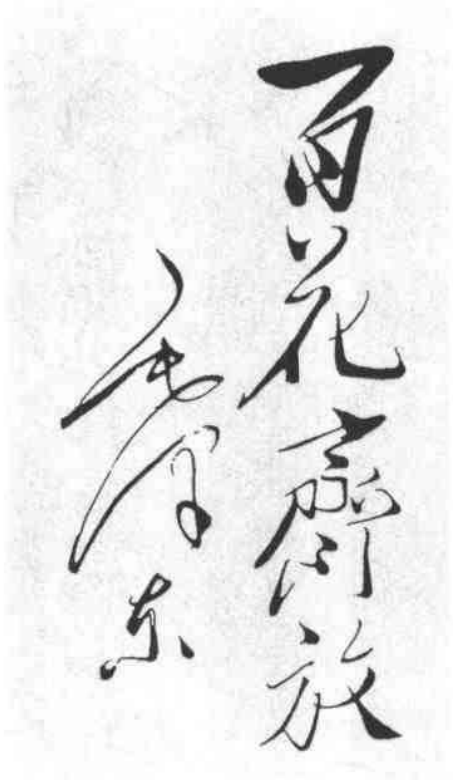 百花齊放
毛泽东